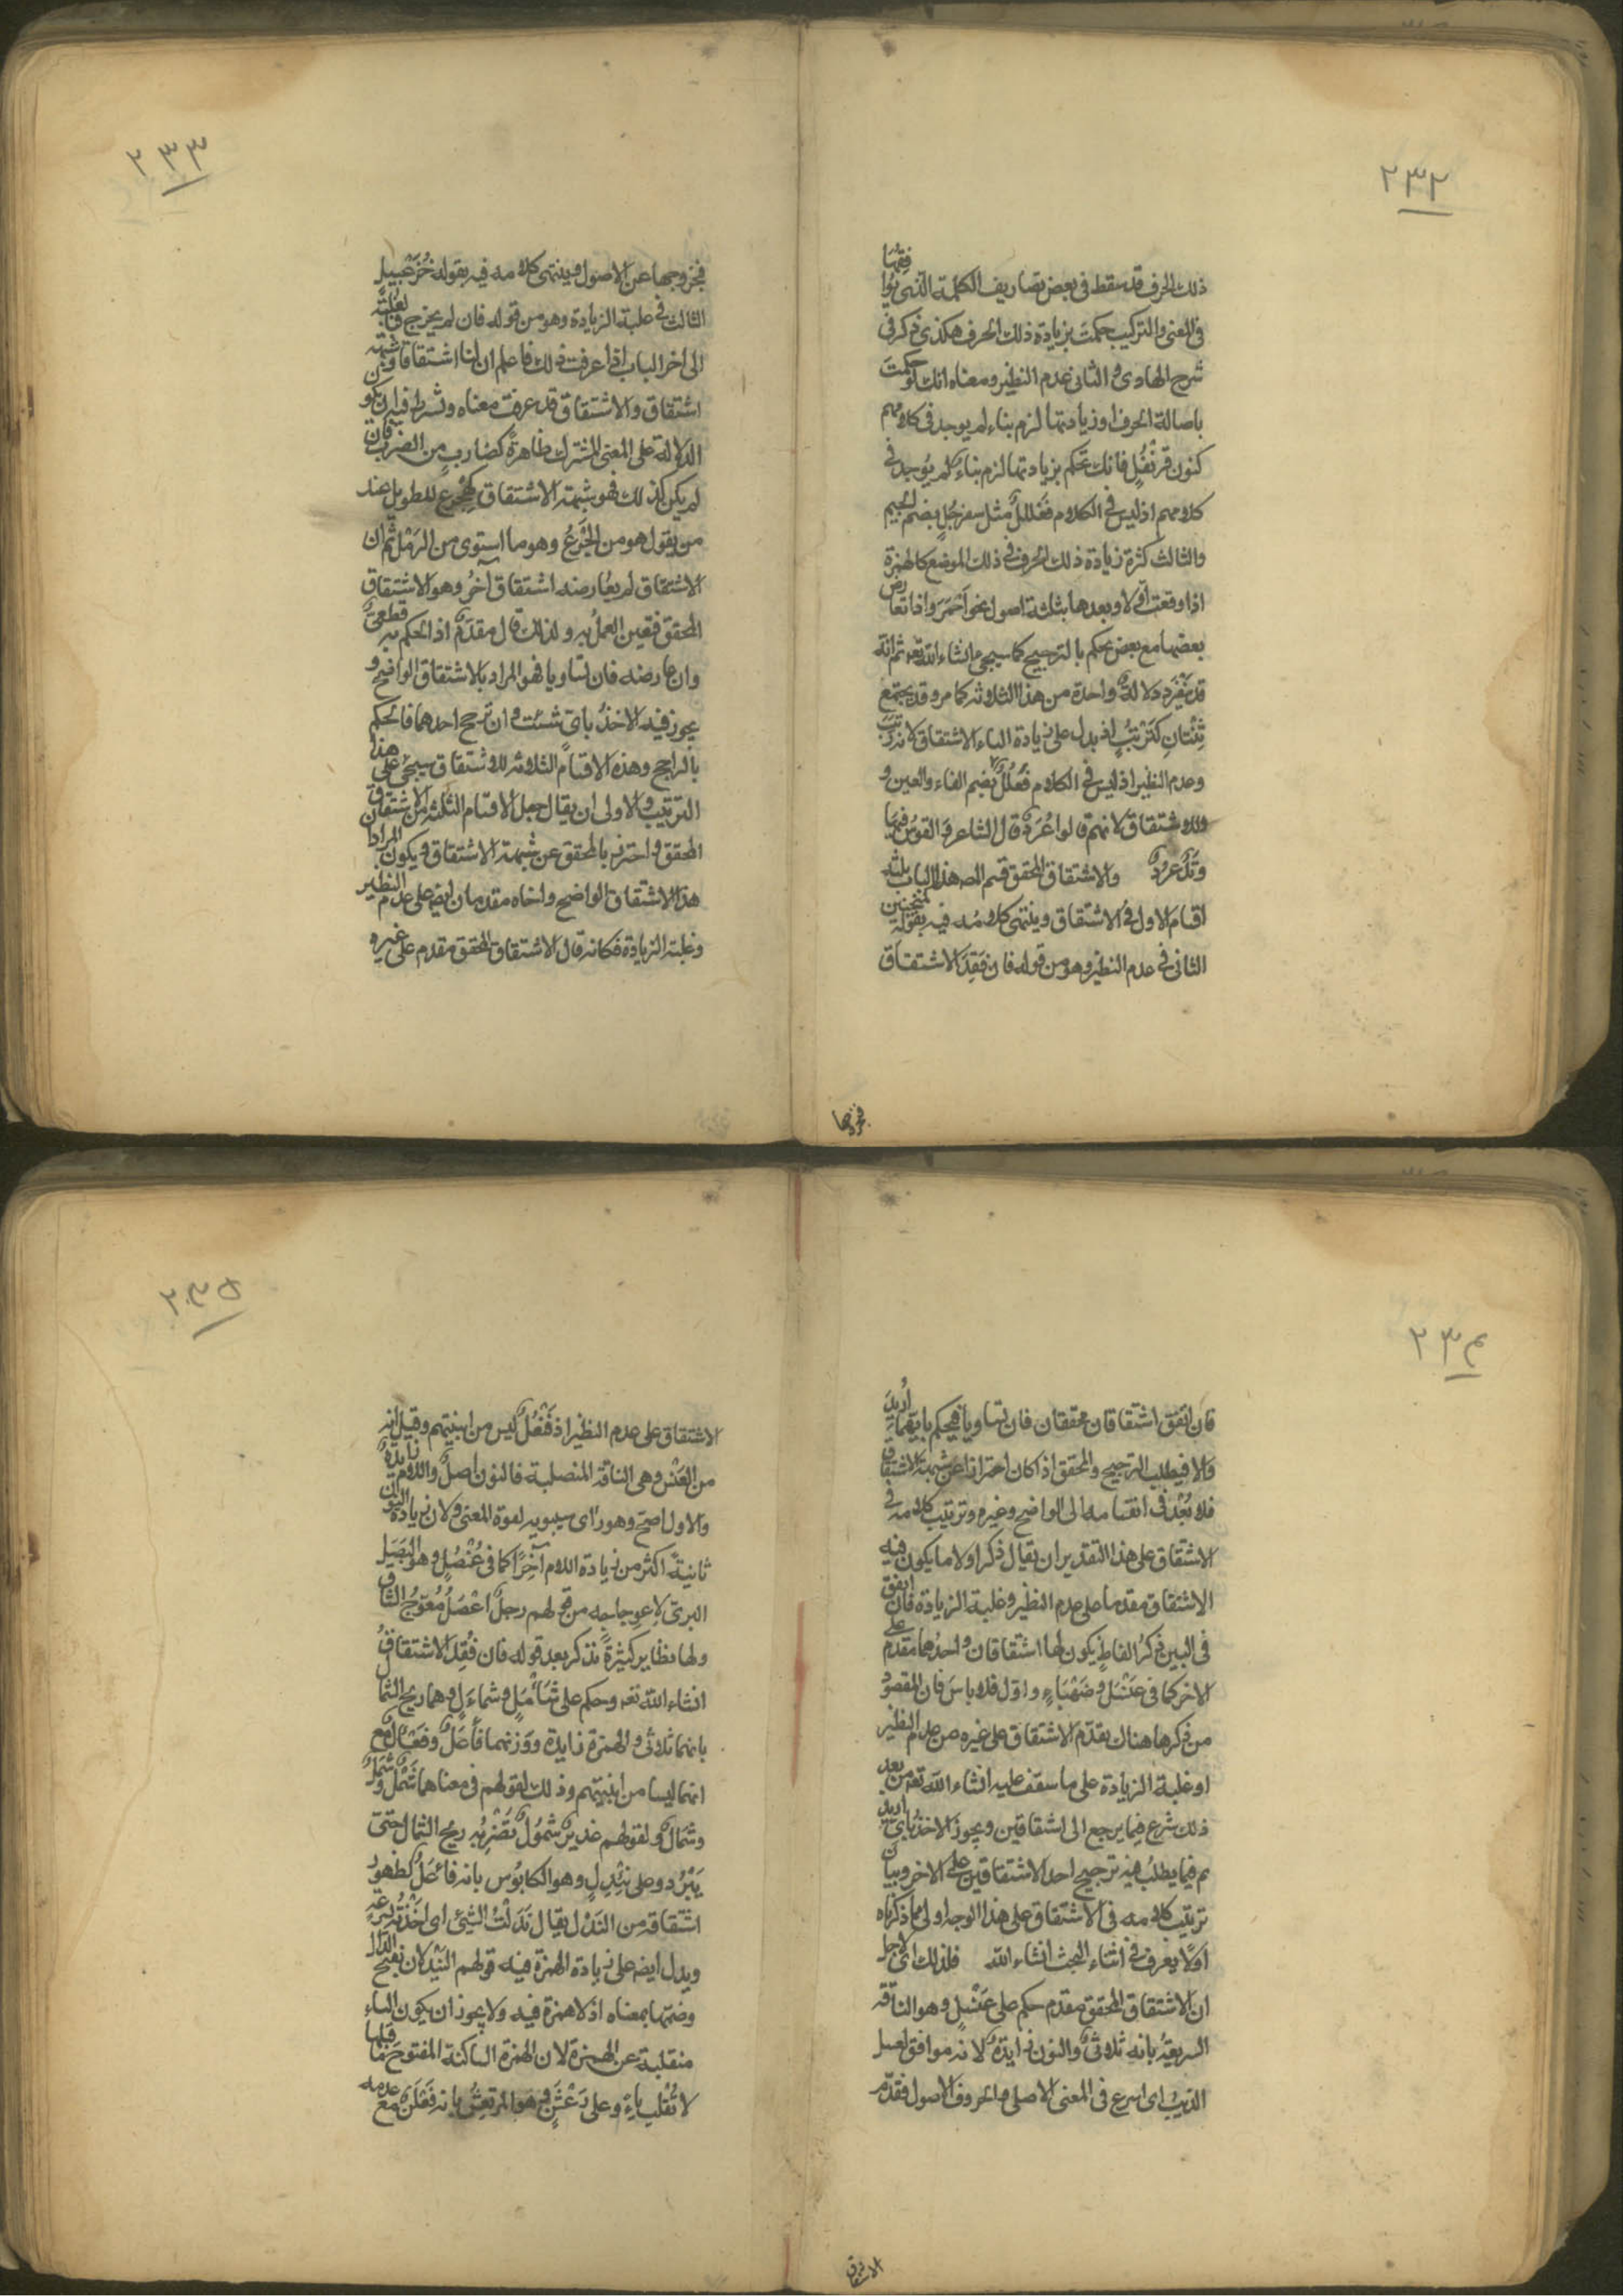 ٢٣٢
ذلك الحرف قد سقط فى بعض تصاريف الكلمة التى توافقها
فى المعنى والتركيب حكمت بزيادة ذلك الحرف هكذى ذكر فى
شرح الهادى و الثانى عدم النظير ومعناه انك لو حكمت
باصالة الحرف او زيادتها لزم بناء لم يوجد فى كلامهم
كنون قرنفل فانك تحكم بزيادتها لزم بناء لم يوجد فى
كلامهم اذ ليس فى الكلام فعلل مثل سفرجل بضم الجيم
والثالث كثرة زيادة ذلك الحرف فى ذلك الموضع كالهمزة
اذا وقعت اولا وبعدها ثلثة اصول نحو احمر واذا تعارض
بعضها مع بعض يحكم بالترجيح كما سيجى انشاء الله تعه ثم انه
قد ينفرد دلالة واحدة من هذا الثلاثه كما مر وقد يجتمع
ثنتان كترتب اذ يدل على زيادة التاء الاشتقاق لانه رتب
وعدم النظير اذ ليس فى الكلام فعلل بضم الفاء والعين و
وللاشتقاق لانهم قالوا عرد قال الشاعر والقوس فيها
وتر عرد والاشتقاق المحقق قسم المصه هذا الباب بثلثه
اقسام الاول فى الاشتقاق وينتهى كلامه فيه بقوله منجنين
الثانى فى عدم النظير وهو من قوله فان فقد الاشتقاق
فخروجها
٢٣٣
فخروجها عن الاصول وينتهى كلامه فيه بقوله خزعبيل
الثالث فى غلبة الزيادة وهو من قوله فان لم يخرج فبالغلبة
الى اخر الباب اذا عرفت ذلك فاعلم ان لنا اشتقاقا وشبهة
اشتقاق والاشتقاق قد عرفت معناه وشرط فيه ان يكون
الدلالة على المعنى المشترك ظاهرة كضارب من الضرب فان
لم يكن كذلك فهو شبهة الاشتقاق كهجرع للطويل عند
من يقول هو من الجرع وهو ما استوى من الرمل ثم ان
الاشتقاق لم يعارضه اشتقاق آخر وهو الاشتقاق
المحقق فتعين العمل به ولذلك قال مقدم اذ الحكم به قطعى
وان عارضه فان تساويا فهو المراد بالاشتقاق الواضح و
يجوز فيه الاخذ باى شئت و ان ترجح احدهما فالحكم
بالراجح وهذه الاقسام الثلاثه للاشتقاق سيجئ على هذا
الترتيب والاولى ان يقال جعل الاقسام الثلثه من الاشتقاق
المحقق و احترز بالمحقق عن شبهة الاشتقاق ويكون المراد
هذا الاشتقاق الواضح واخاه مقدمان ايضا على عدم النظير
وغلبة الزيادة فكانه قال الاشتقاق المحقق مقدم على غيره
٢٣٤
فان اتفق اشتقاقان محققان فان تساويا فيحكم بايهما اريد
والا فيطلب الترجيح والمحقق اذ كان احترازا عن شبهة الاشتقاق
فلا بعد فى انقسامه الى الواضح وغيره وترتيب كلامه فى
الاشتقاق على هذا التقدير ان يقال ذكر اولا ما يكون فيه
الاشتقاق مقدما على عدم النظير وغلبة الزيادة فان اتفق
فى البين ذكر الفاظ يكون لها اشتقاقان واحدهما مقدم على
الاخر كما فى عنسل وضهياء واول فلا باس فان المقصود
من ذكرها هناك تقدم الاشتقاق على غيره من عدم النظير
او غلبة الزيادة على ما ستقف عليه انشاء الله تعه من بعد
ذلك شرع فيما يرجع الى اشتقاقين ويجوز الاخذ باى اريد
ثم فيما يطلب فيه ترجيح احد الاشتقاقين على الاخر وبيان
ترتيب كلامه فى الاشتقاق على هذا الوجه اولى مما ذكرناه
اولا يعرف فى اثناء البحث انشاء الله فلذلك اى لاجل
ان الاشتقاق المحقق مقدم حكم على عنسل وهو الناقة
السريعة بانه ثلاثى والنون زايدة لانه موافق لعسل
الذيب اى اسرع فى المعنى الاصلى والحروف الاصول فقدم
الاشتقاق
٢٣٥
الاشتقاق على عدم النظير اذ فنعل ليس من ابنيتهم وقيل انه
من العنس وهى الناقة المنصلبة فالنون اصل واللام زايدة
والاول اصح وهو راى سيبويه لقوة المعنى ولان زيادة النون
ثانية اكثر من زيادة اللام آخرا كما فى عنصل وهو البصل
البرى لاعوجاجه من قولهم رجل اعصل معوج الساق
ولها نظاير كثيرة تذكر بعد قوله فان فقد الاشتقاق
انشاء الله تعه وحكم على شأمل و شمأل وهما ريح الشمال
بانهما ثلاثى والهمزة زايدة ووزنهما فأعل وفعأل مع
انهما ليسا من ابنيتهم وذلك لقولهم فى معناهما شمل وشمل
وشمال ولقولهم غدير مشمول تضربه ريح الشمال حتى
يبرد وعلى نئدل وهو الكابوس بانه فائعل لظهور
اشتقاقه من الندل يقال ندلت الشئ اى اخذته بسرعة
ويدل ايضه على زيادة الهمزة فيه قولهم النيدلان بفتح الدال
وضمها بمعناه اذ لا همزة فيه ولا يجوز ان يكون الياء
منقلبة عن الهمزة لان الهمزة الساكنة المفتوح ما قبلها
لا تقلب ياء وعلى رعشن وهو المرتعش بانه فعلن مع عدمه